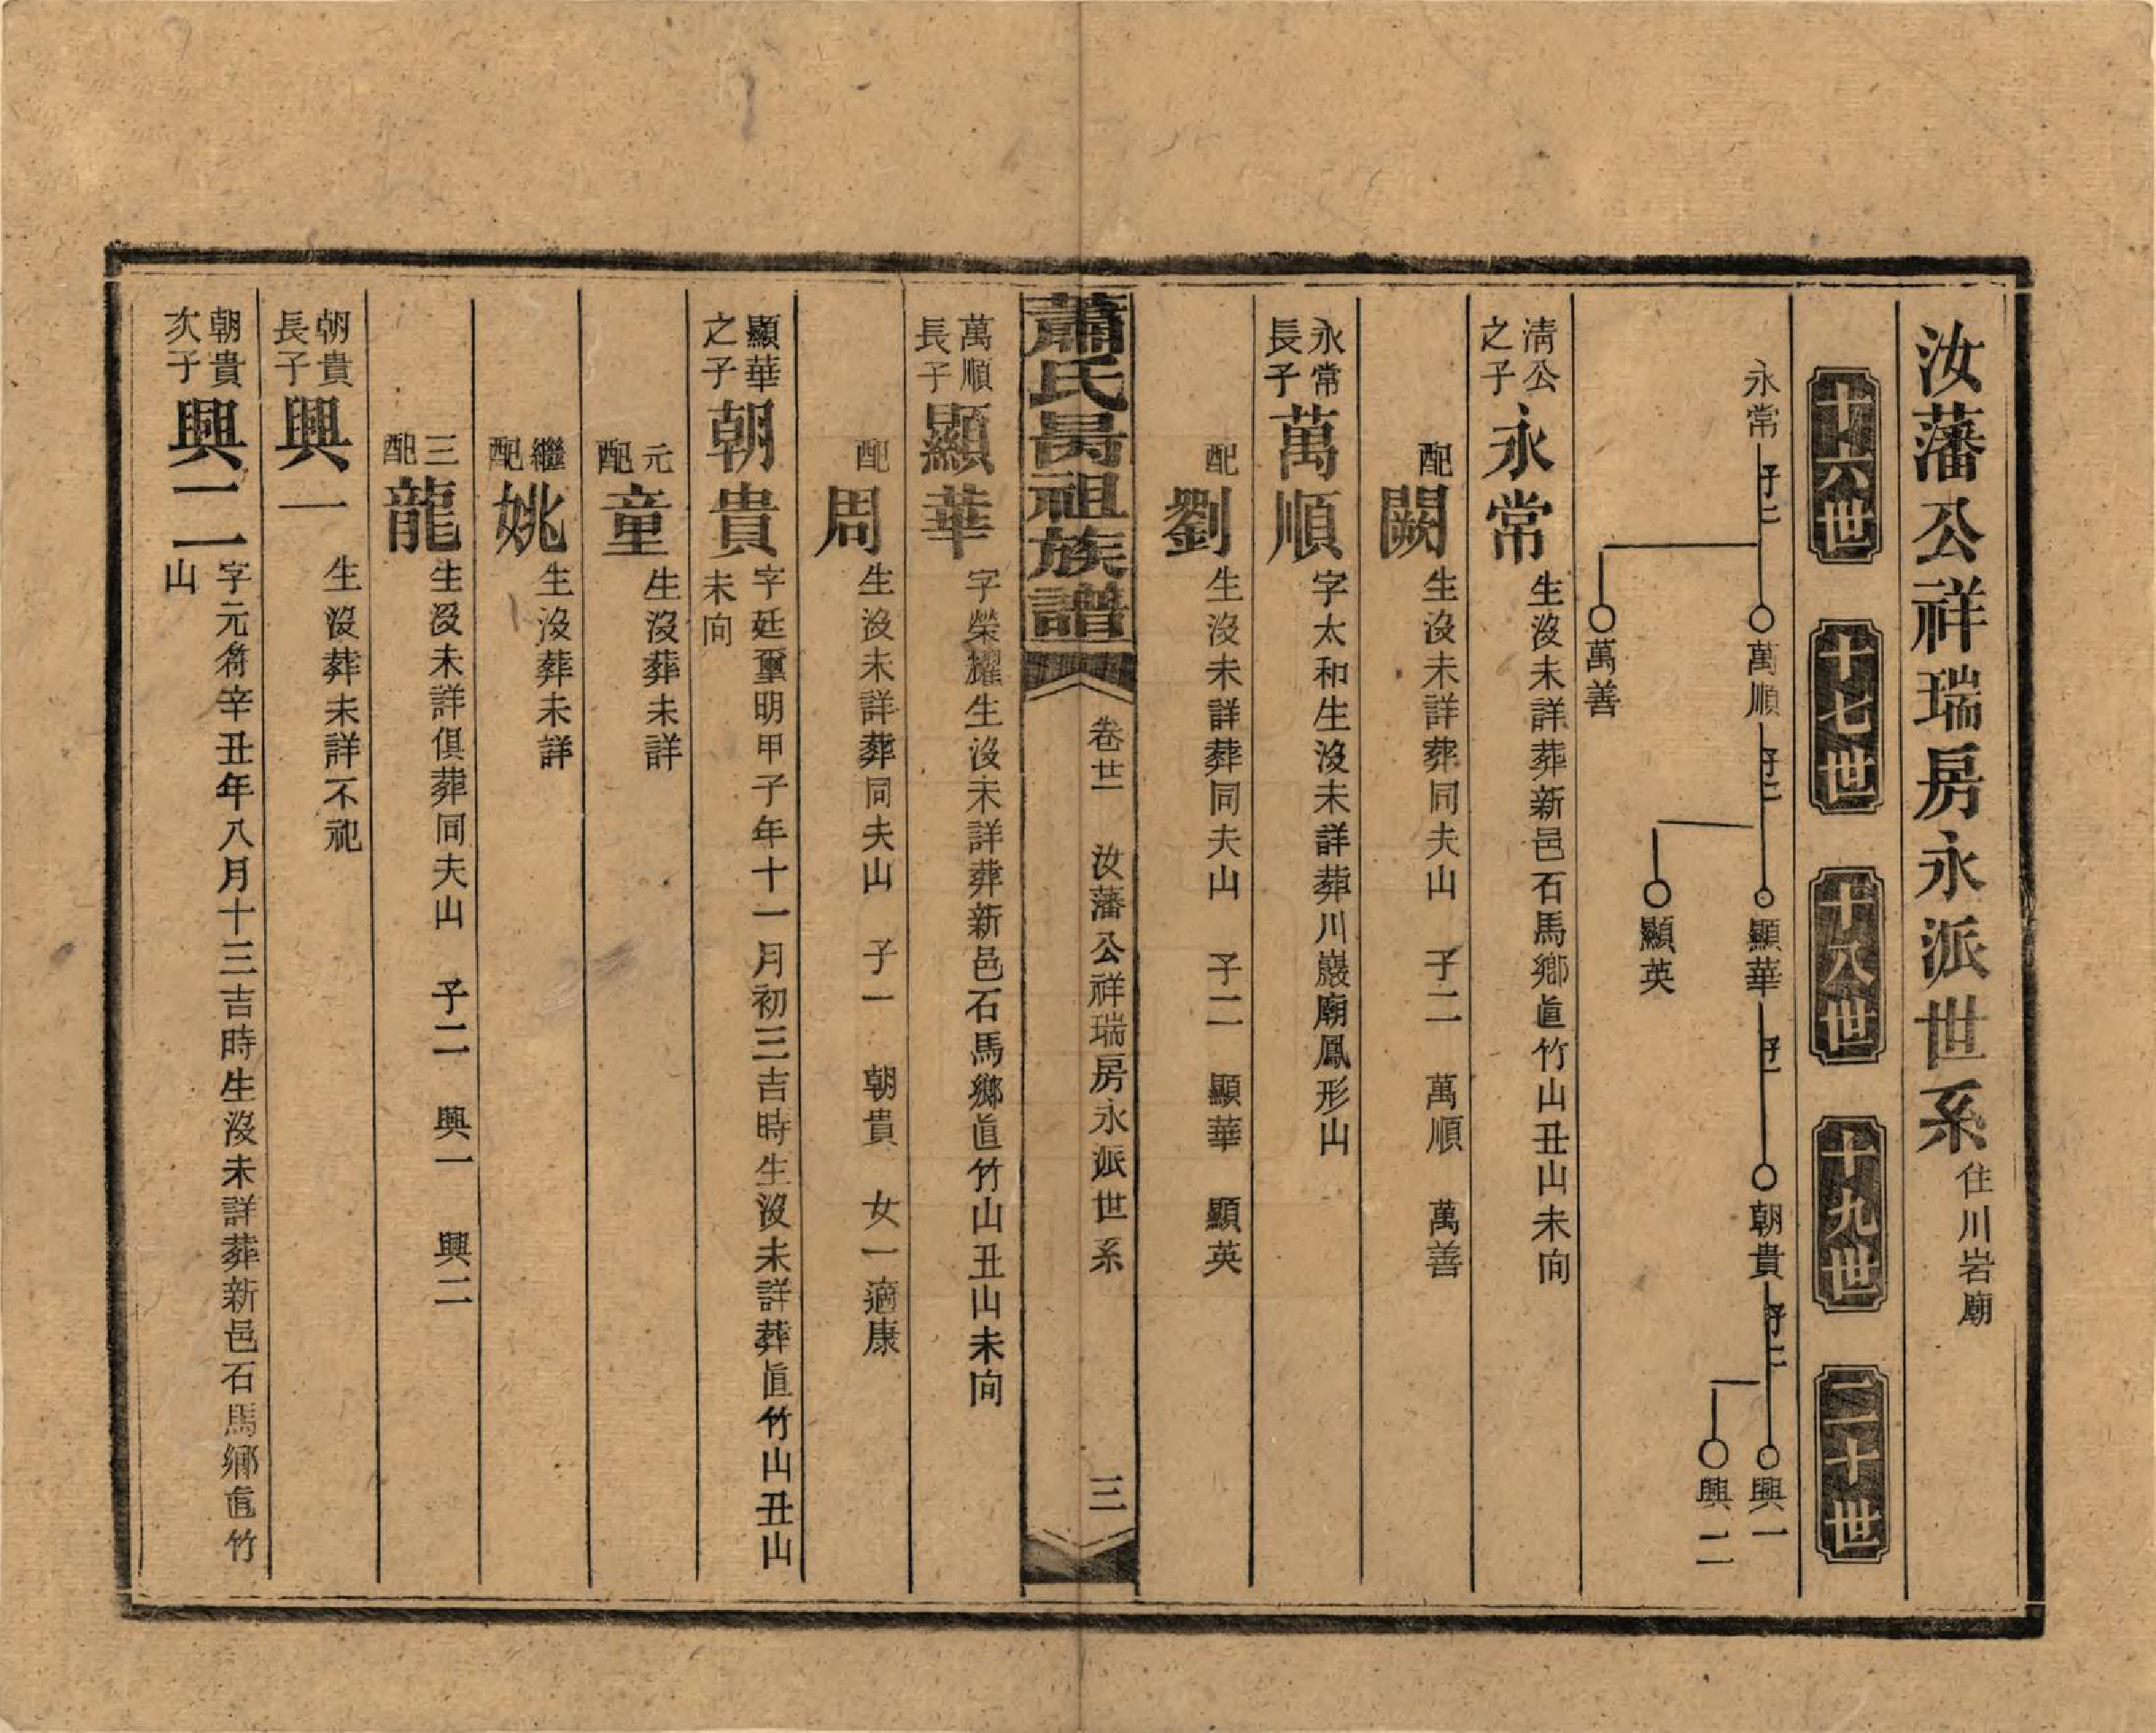 汝藩公祥瑞房永派世系 住川岩廟
十六世 十七世 十八世 十九世 二十世
永常 子二 萬順 子二 顯華 子一 朝貴 子二 興一
興二
顯英
萬善
清公之子 永常 生沒未詳葬新邑石馬鄉眞竹山丑山未向
配 闕 生沒未詳葬同夫山 子二 萬順 萬善
永常長子 萬順 字太和生沒未詳葬川巖廟鳳形山
配 劉 生沒未詳葬同夫山 子二 顯華 顯英
蕭氏昺祖族譜 卷廿一 汝藩公祥瑞房永派世系 三
萬順長子 顯華 字榮耀生沒未詳葬新邑石馬鄉眞竹山丑山未向
配 周 生沒未詳葬同夫山 子一 朝貴 女一適康
顯華之子 朝貴 字廷璽明甲子年十一月初三吉時生沒未詳葬眞竹山丑山
未向
元配 童 生沒葬未詳
繼配 姚 生沒葬未詳
三配 龍 生沒未詳俱葬同夫山 子二 興一 興二
朝貴長子 興一 生沒葬未詳不祀
朝貴次子 興二 字元符辛丑年八月十三吉時生沒未詳葬新邑石馬鄉眞竹
山